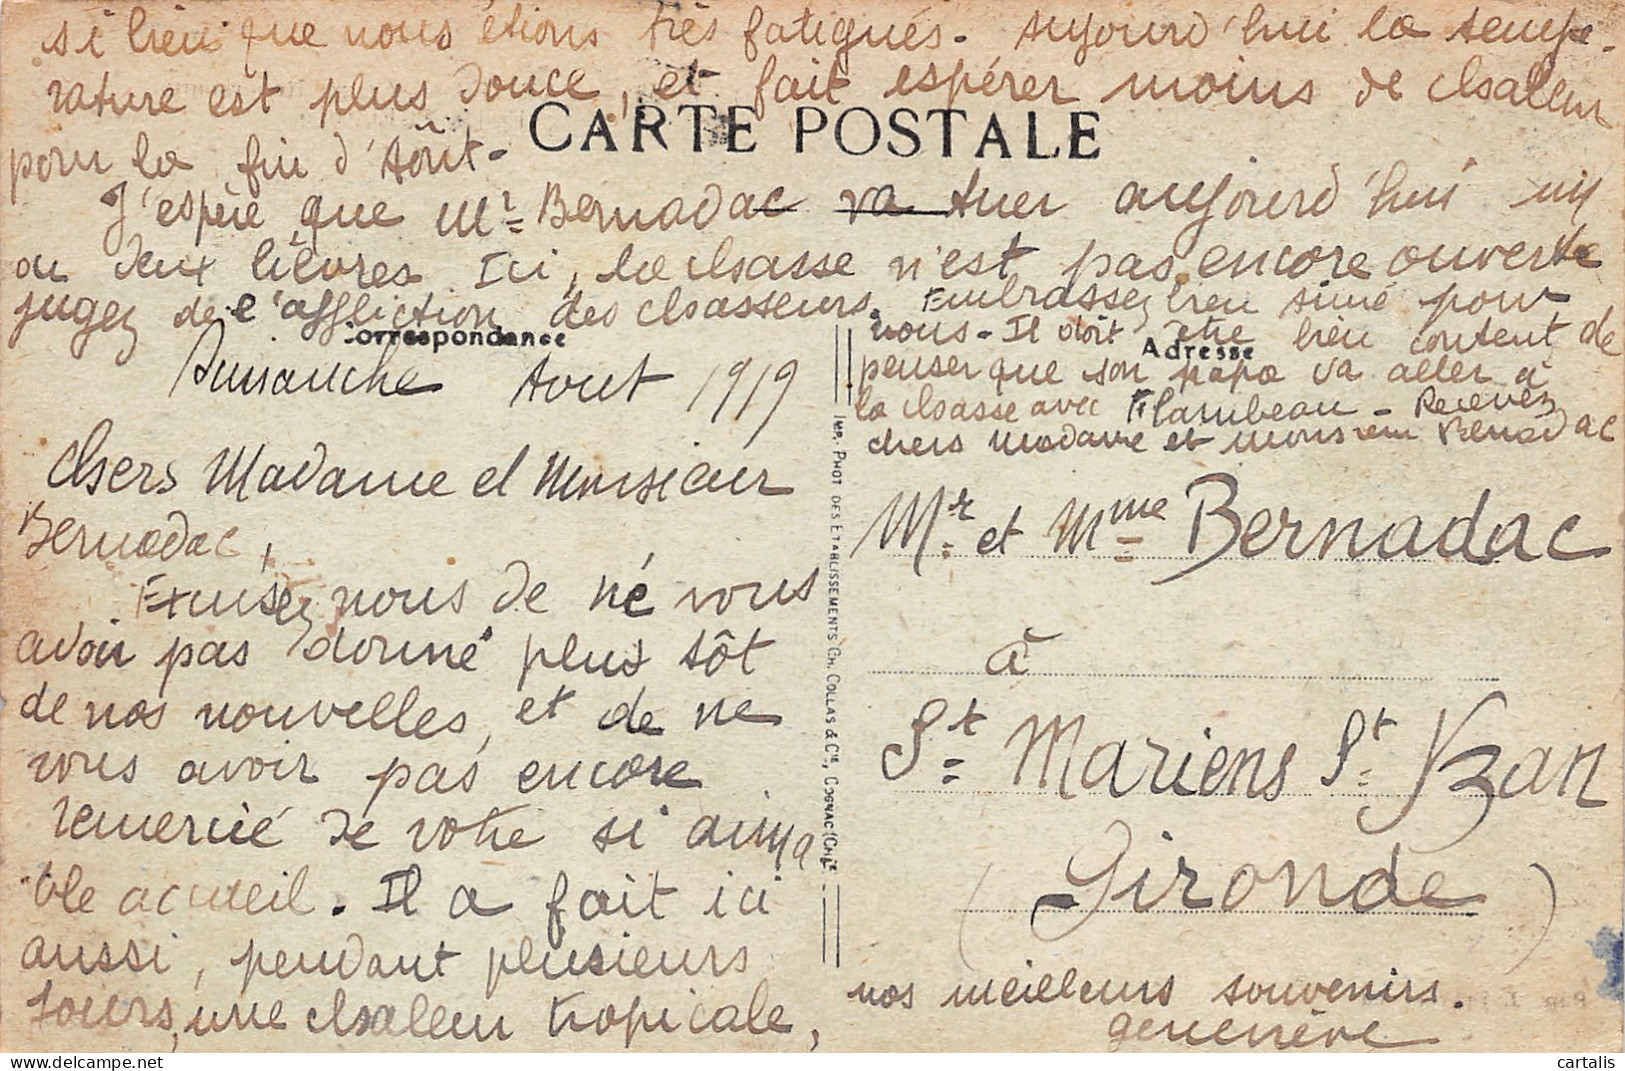 si bien que nous étions très fatigués. Aujourd'hui la tempé-
rature est plus douce, et fait espérer moins de chaleur
CARTE POSTALE
pour la fin d'Août.
J'espère que Mr Bernadac va tuer aujourd'hui un
ou deux lièvres. Ici, la chasse n'est pas encore ouverte
jugez de l'affliction des chasseurs. Embrassez bien Simé pour
nous. Il doit être bien content de
penser que son papa va aller à
la chasse avec Flambeau. Recevez
chers madame et monsieur Bernadac
Correspondance
Adresse
Dimanche Aout 1919
Chers Madame et Monsieur
Bernadac,
Excusez nous de né vous
avoir pas donné plus tôt
de nos nouvelles, et de ne
vous avoir pas encore
remercié de votre si aima
ble accueil. Il a fait ici
aussi, pendant plusieurs
jours, une chaleur tropicale,
IMP. PHOT DES ETABLISSEMENTS CH. COLLAS & Cie, COGNAC (Chte)
Mr et Mme Bernadac
à
St Mariens St Yzan
(Gironde)
nos meilleurs souvenirs.
geneviève
cartalis